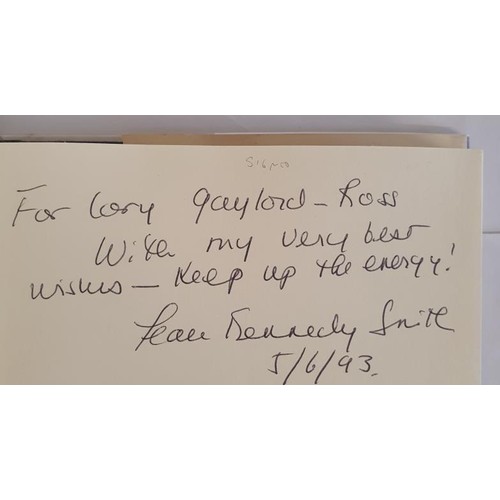 Signed
For Cory Gaylord - Ross
With my very best
wishes — Keep up the energy!
Jean Kennedy Smith
5/6/93.